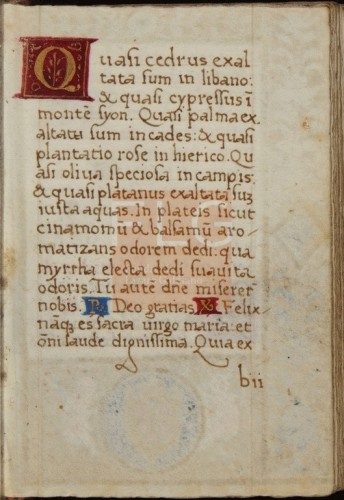 Quasi cedrus exal
tata sum in libano:
& quasi cypressus ī
monte syon. Quasi palma ex
altata sum in cades: & quasi
plantatio rose in hierico. Qu
asi oliva speciosa in campis:
& quasi platanus exaltata suʒ
iusta aquas. In plateis sicut
cinamomū & balsamū aro-
matizans odorem dedi: qua
myrrha electa dedi suavita
odoris. Tu autē dn̄e miserer
nobis. R Deo gratias. X Felix
nāq es sacra uirgo maria: et
oñi laude dignissima. Quia ex
bii